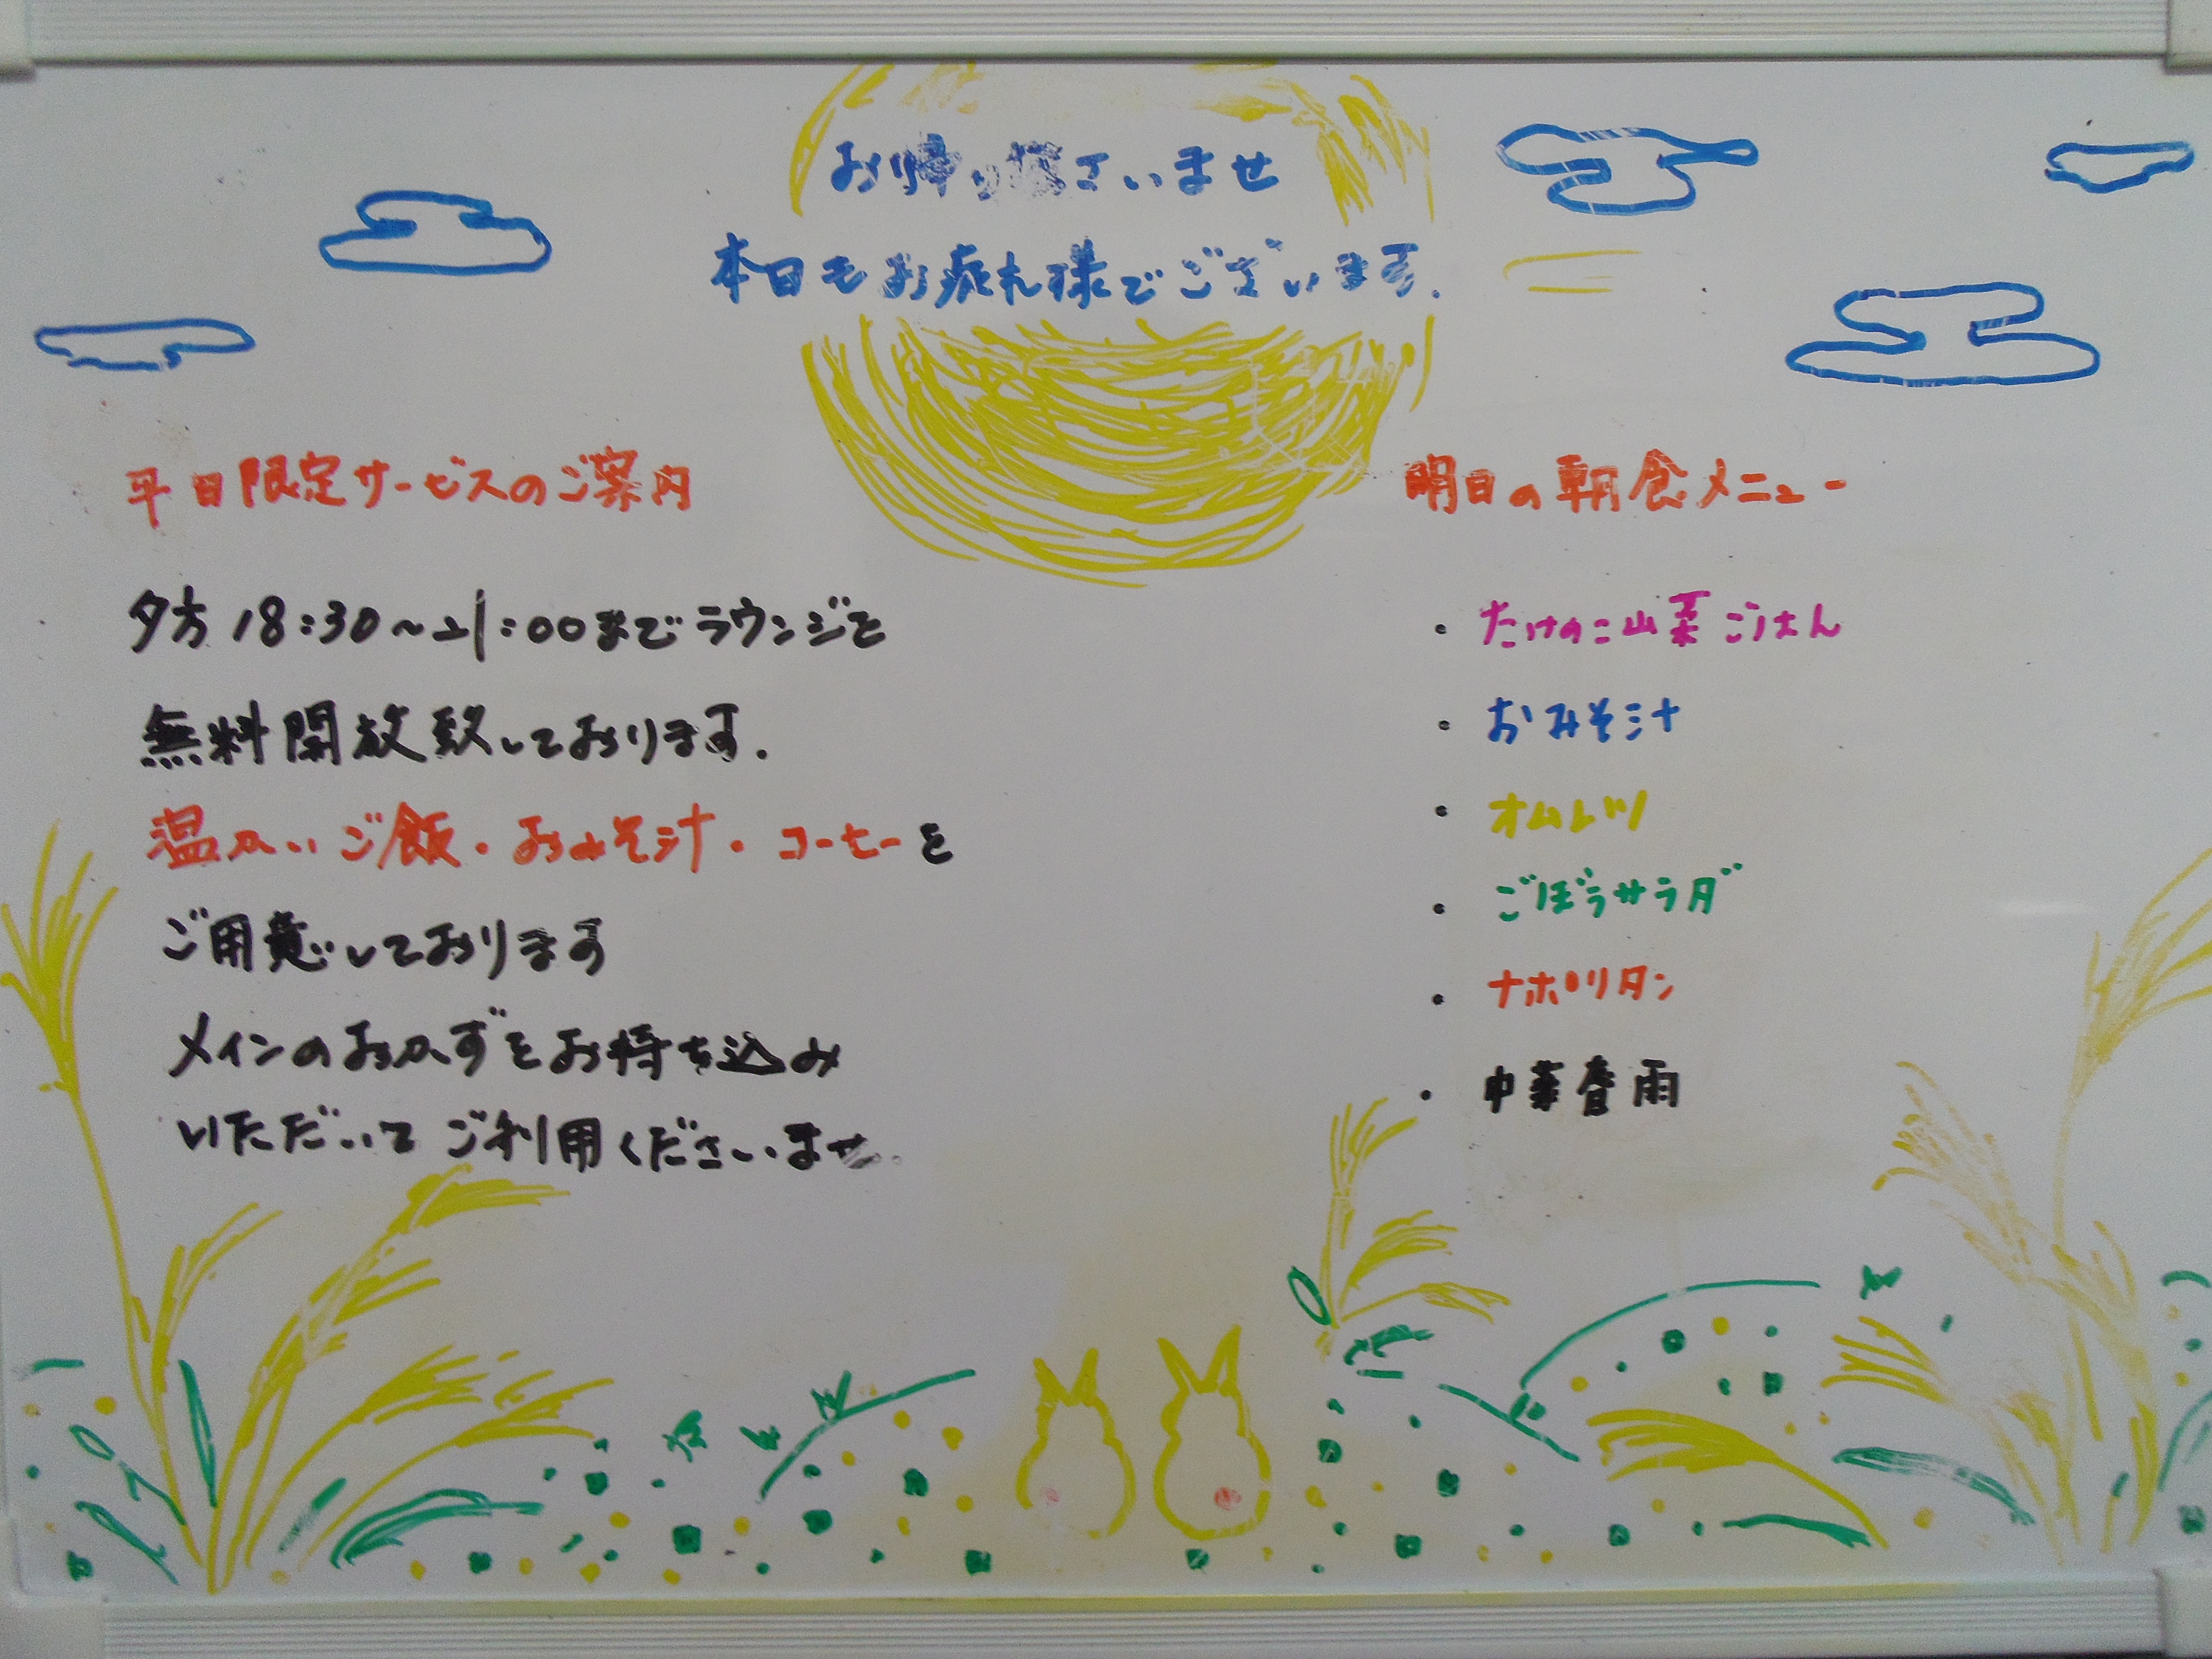 お帰りなさいませ
本日もお疲れ様でございます.
平日限定サービスのご案内
夕方 18:30～21:00までラウンジを
無料開放致しております.
温かいご飯・おみそ汁・コーヒーを
ご用意しております
メインのおかずをお持ち込み
いただいて ご利用くださいませ.
明日の朝食メニュー
・たけのこ山菜ごはん
・おみそ汁
・オムレツ
・ごぼうサラダ
・ナポリタン
・中華春雨